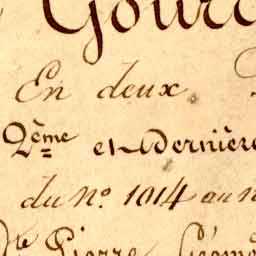 Gour
En deux
2ème et Dernière
du Nº. 1014 au n
Pierre Géomè